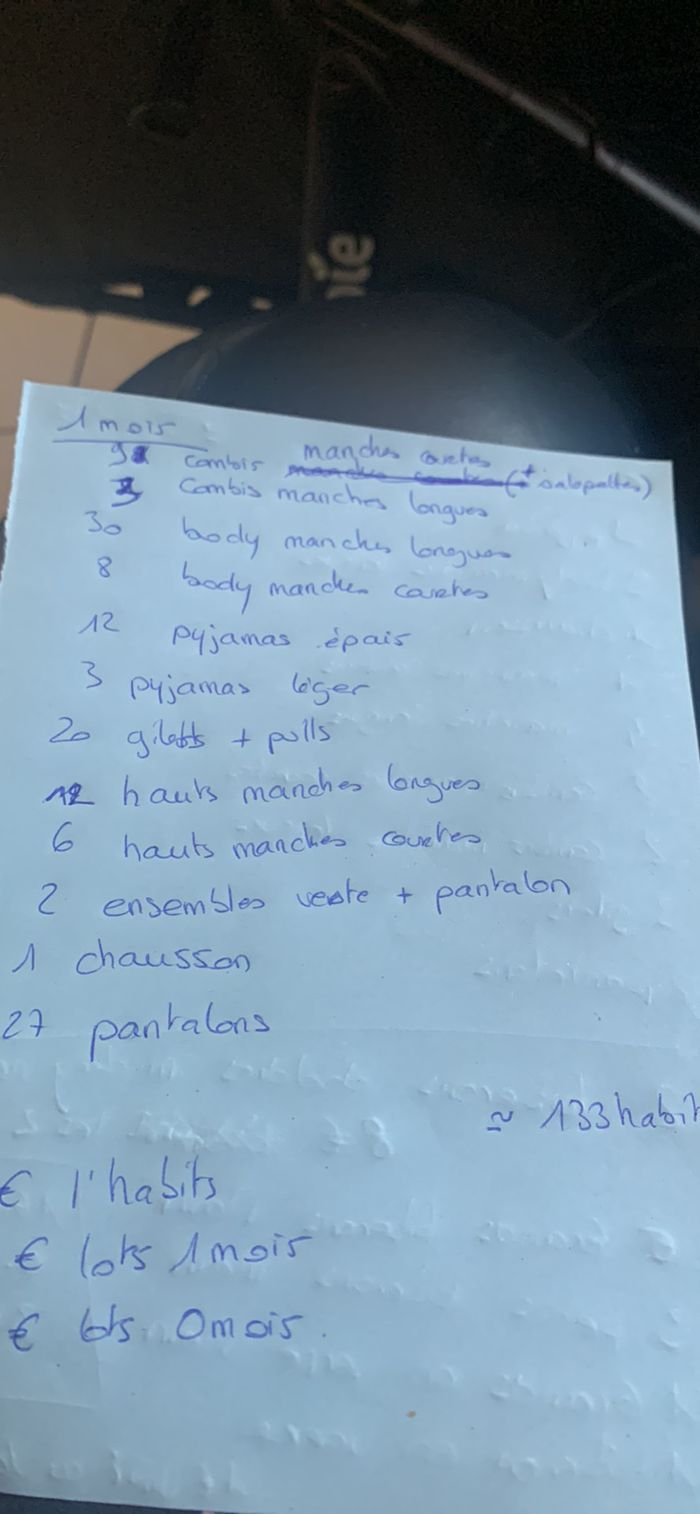 ie
1 mois
9 combis manches courtes (+ salopettes)
3 combis manches longues
30 body manches longues
8 body manches courtes
12 pyjamas épais
3 pyjamas léger
20 gilets + pulls
12 hauts manches longues
6 hauts manches courtes
2 ensembles veste + pantalon
1 chausson
27 pantalons
≃ 133 habit
€ l'habits
€ lots 1 mois
€ lots 0 mois.